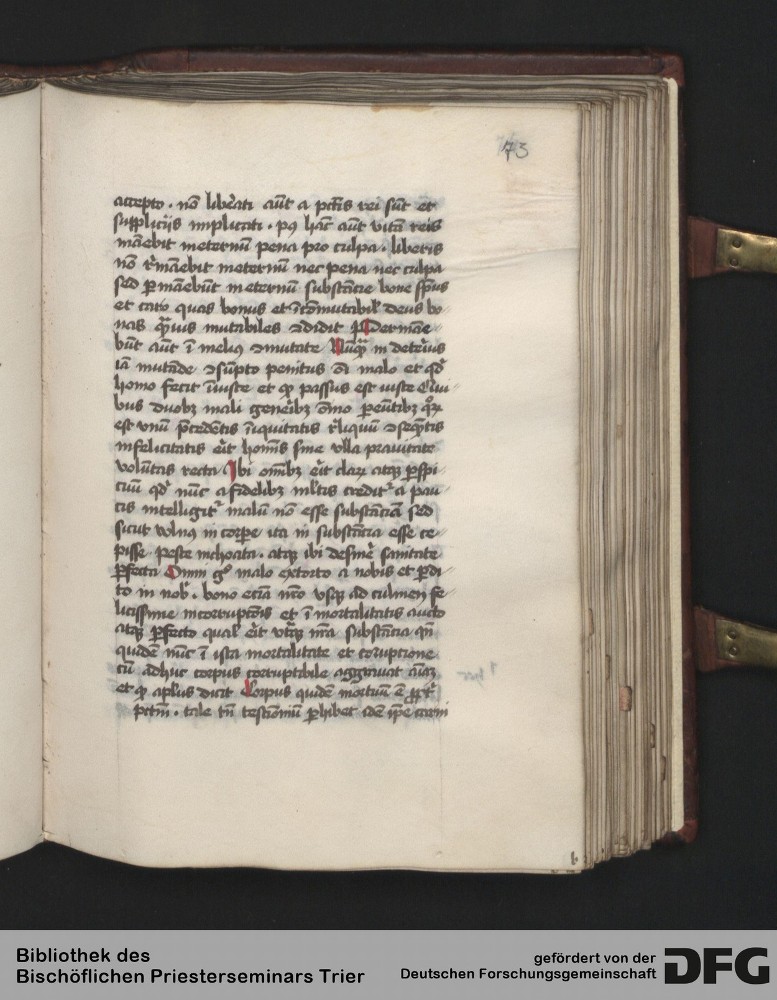 73
accepto . nō lib̄ati aūt a pctīs rei sūt et
supplicijs implicati . pꝰ hāc aūt vitā reis
māebit ineternū pena pro culpa . liberis
nō r̄māebit ineternū nec pena nec culpa
sed p̱māebūt ineternū substācie bone sp̄us
et caro quas bonus et īcōmutabil' deus bo
nas q̄ȝuis mutabiles ↄdidit Per māe
būt aūt ī meliꝰ ↄmutate Nūqȝ in deteriꝰ
iā mutāde ↄsūpto penitus oī malo et qd̄
homo fecit īiuste et qd̄ passus est iuste Qui
bus duobȝ mali generibȝ oīno peūtibȝ qoꝝ
est vnū p̄cedētis īiquitatis r̄liquū ↄseqētis
infelicitatis erit hoīnis sine vlla prauitate
voluntas recta Ibi oīnibȝ erit clarū atqȝ p̱spi
cuū qd̄ nūc a fidelibȝ ml'tis creditr̄ a pau
cis intelligitr̄ malū nō esse substāciā sed
sicut vulnꝰ in corpe ita in substācia esse ce
pisse peste inchoata . atqȝ ibi desinē sanitate
p̱fecta Omni gͦ malo extorto a nobis et p̱di
to in nob̄ . bono eciā nr̄o vsqȝ ad culmen fe
licissime incorrupcōis et ī mortalitatis aucto
atqȝ p̱fecto qual' erit vtqȝ nr̄a substācia qn̄
quidē nūc ī ista mortalitate et corupcione
cū adhuc corpus corruptibile aggrauat aīaȝ
et qd̄ apl̄us dicit Corpus quidē mortuū ē ꝓpt̄
pctm̄ . tale tn̄ testiōniū p̱hibet idē ip̄e carni
Bibliothek des
Bischöflichen Priesterseminars Trier
gefördert von der
Deutschen Forschungsgemeinschaft
DFG